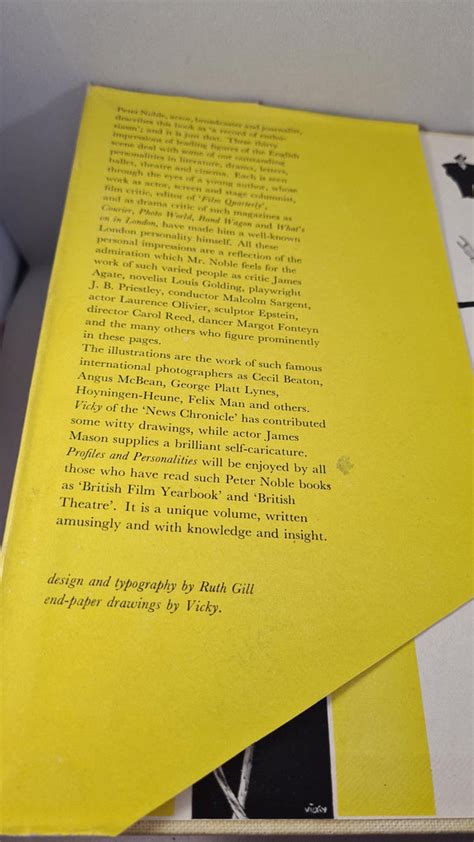 Peter Noble, actor, broadcaster and journalist,
describes this book as 'a record of enthu-
siasm'; and it is just that. These thirty
impressions of leading figures of the English
scene deal with some of our outstanding
personalities in literature, drama, letters,
ballet, theatre and cinema. Each is seen
through the eyes of a young author, whose
work as actor, screen and stage columnist,
film critic, editor of 'Film Quarterly',
and as drama critic of such magazines as
Courier, Photo World, Band Wagon and What's
on in London, have made him a well-known
London personality himself. All these
personal impressions are a reflection of the
admiration which Mr. Noble feels for the
work of such varied people as critic James
Agate, novelist Louis Golding, playwright
J. B. Priestley, conductor Malcolm Sargent,
actor Laurence Olivier, sculptor Epstein,
director Carol Reed, dancer Margot Fonteyn
and the many others who figure prominently
in these pages.
The illustrations are the work of such famous
international photographers as Cecil Beaton,
Angus McBean, George Platt Lynes,
Hoyningen-Heune, Felix Man and others.
Vicky of the 'News Chronicle' has contributed
some witty drawings, while actor James
Mason supplies a brilliant self-caricature.
Profiles and Personalities will be enjoyed by all
those who have read such Peter Noble books
as 'British Film Yearbook' and 'British
Theatre'. It is a unique volume, written
amusingly and with knowledge and insight.
design and typography by Ruth Gill
end-paper drawings by Vicky.
vicky